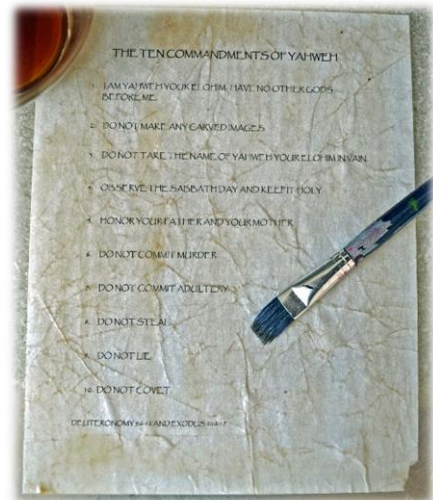 THE TEN COMMANDMENTS OF YAHWEH
1. I AM YAHWEH YOUR ELOHIM. HAVE NO OTHER GODS
BEFORE ME.
2. DO NOT MAKE ANY CARVED IMAGES
3. DO NOT TAKE THE NAME OF YAHWEH YOUR ELOHIM IN VAIN.
4. OBSERVE THE SABBATH DAY AND KEEP IT HOLY
5. HONOR YOUR FATHER AND YOUR MOTHER
6. DO NOT COMMIT MURDER
7. DO NOT COMMIT ADULTERY
8. DO NOT STEAL
9. DO NOT LIE
10. DO NOT COVET
DEUTERONOMY AND EXODUS